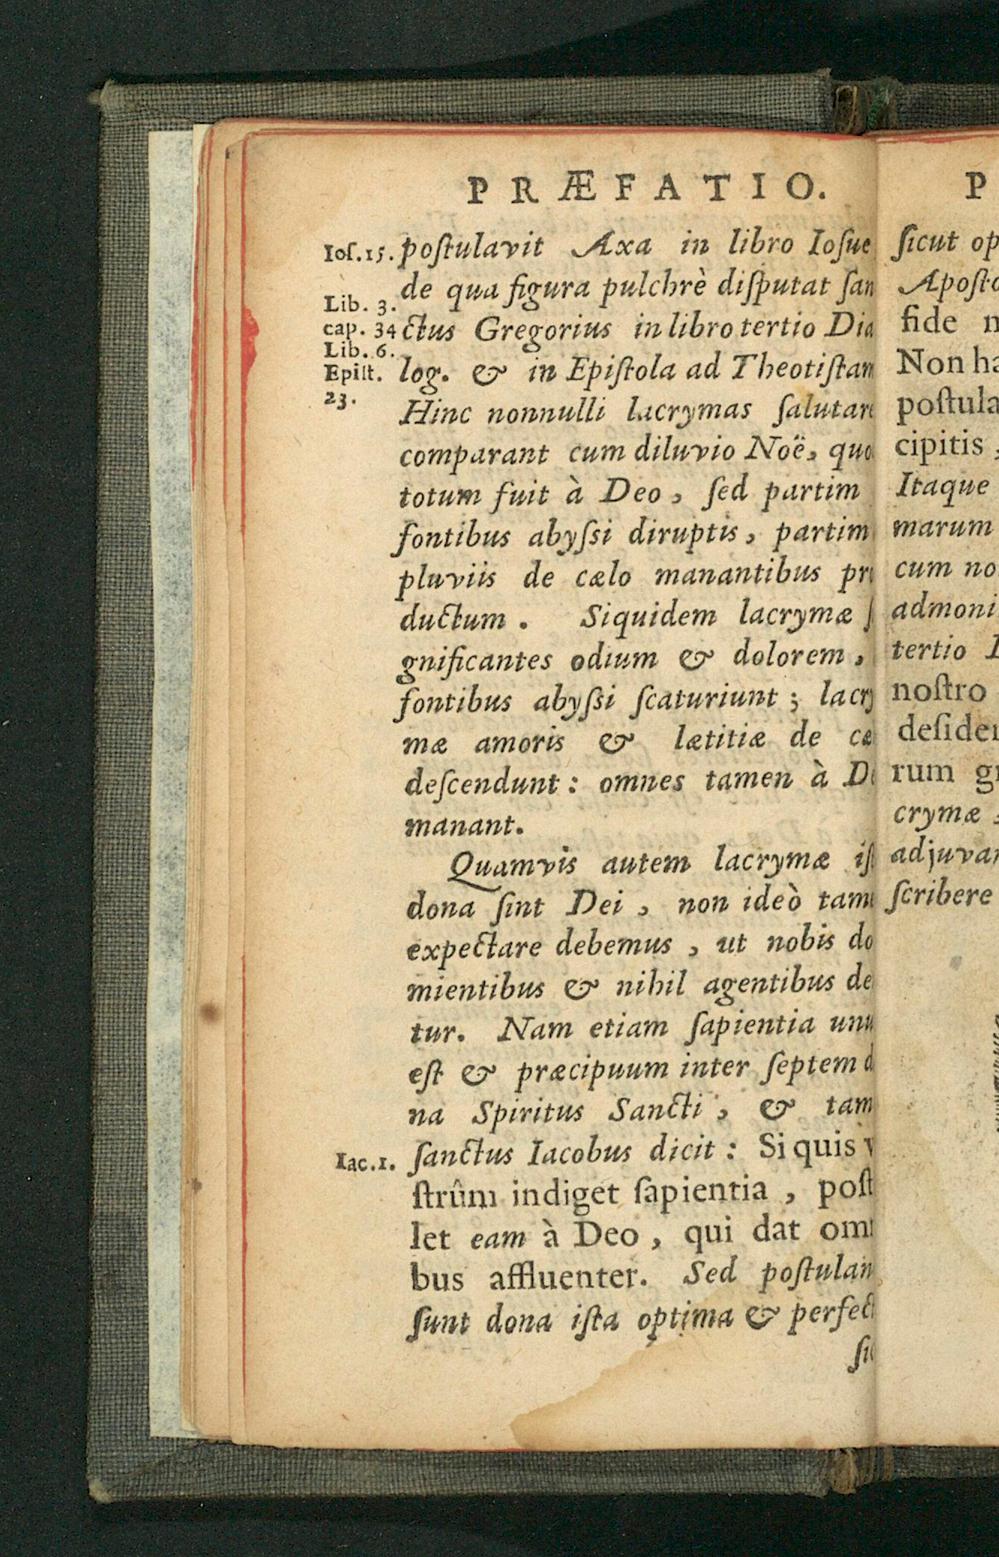 PRÆFATIO.
Ioſ.15. poſtulavit Axa in libro Ioſue
Lib. 3. de qua figura pulchrè diſputat ſan
cap. 34 ctus Gregorius in libro tertio Dia
Lib. 6.
Epiſt. log. & in Epiſtola ad Theotiſtam
23. Hinc nonnulli lacrymas ſalutare
comparant cum diluvio Noë, quo
totum fuit à Deo, ſed partim
fontibus abyſſi diruptis, partim
pluviis de cælo manantibus pr
ductum. Siquidem lacrymæ ſ
gnificantes odium & dolorem,
fontibus abyſſi ſcaturiunt; lacry
mæ amoris & lætitiæ de cæ
deſcendunt: omnes tamen à D
manant.
Quamvis autem lacrymæ iſ
dona ſint Dei, non ideò tam
expectare debemus, ut nobis do
mientibus & nihil agentibus de
tur. Nam etiam ſapientia unu
eſt & præcipuum inter ſeptem d
na Spiritus Sancti, & tam
Iac.1. ſanctus Iacobus dicit: Si quis v
ſtrûm indiget ſapientia, poſt
let eam à Deo, qui dat om
bus affluenter. Sed poſtulan
ſunt dona iſta optima & perfect
ſic
P
ſicut op
Apoſto
fide n
Non ha
poſtula
cipitis,
Itaque
marum
cum no
admoni
tertio
noſtro
deſider
rum gr
crymæ
adjuvan
ſcribere